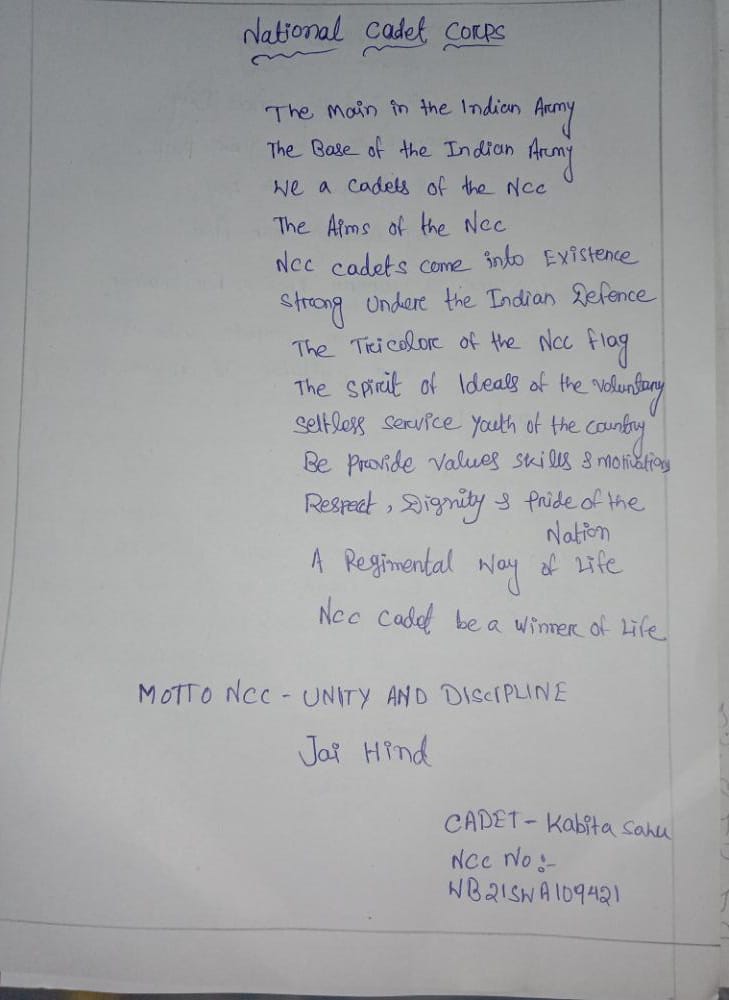 National Cadet Corps
The main in the Indian Army
The Base of the Indian Army
We a cadets of the Ncc
The Aims of the Ncc
Ncc cadets come into Existence
Strong Under the Indian Defence
The Tricolor of the Ncc flag
The spirit of Ideals of the voluntary
Selfless service youth of the country
Be provide values skills & motivations
Respect, Dignity & pride of the
Nation
A Regimental Way of Life
Ncc Cadet be a winner of Life
MOTTO NCC - UNITY AND DISCIPLINE
Jai Hind
CADET - Kabita Sahu
NCC No :-
WB21SWA109421